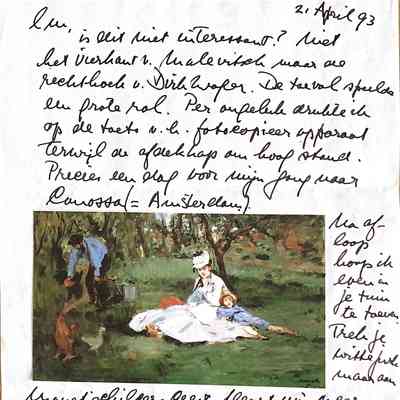 21 April 93
is dit niet interessant? Niet
het vierkant v. Malevitsch maar de
rechthoek v. Dirk De toeval speelde
een grote rol. Per ongeluk drukte ik
op de toets v. h. fotocopieer apparaat
terwijl de afdekkap omhoog stond.
Precies een dag voor mijn gang naar
Canossa (= Amsterdam)
Na af-
loop
hoop ik
even in
je tuin
te toeven
Trek je
witte jurk
maar aan